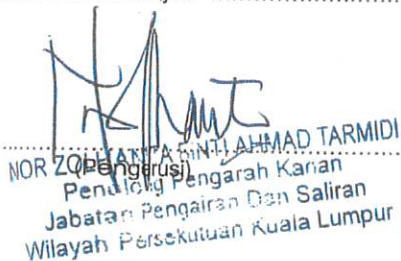 NOR BINTI AHMAD TARMIDI
(Pengerusi)
Penolong Pengarah Kanan
Jabatan Pengairan Dan Saliran
Wilayah Persekutuan Kuala Lumpur